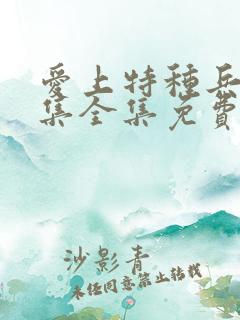 愛上特種兵
集全集免費
沙影青
未经同意禁止转载